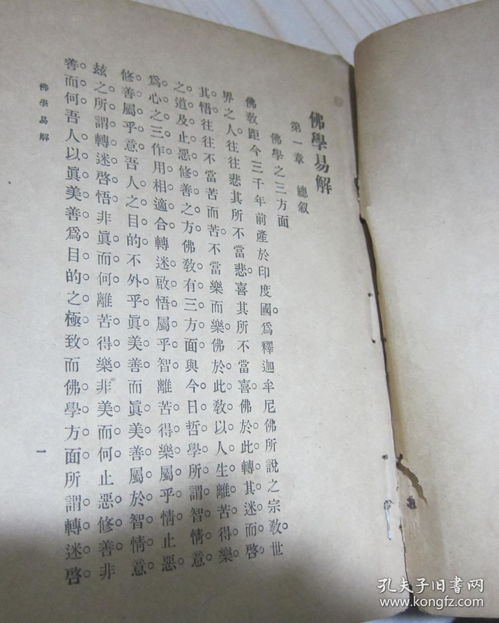 佛學易解
第一章　總叙
佛學之三方面
佛敎距今三千年前產於印度國。爲釋迦牟尼佛所說之宗敎世
界之人往往悲其所不當悲。喜其所不當喜。佛於此轉其迷而啓
其悟。往往不當苦而苦。不當樂而樂。佛於此敎以人生離苦得樂
之道。及止惡修善之方。佛敎有三方面。與今日哲學所謂智情意
爲心之三作用相適合。轉迷啟悟屬乎智。離苦得樂屬乎情。止惡
修善屬乎意。吾人之目的不外乎眞美善。而眞美善屬於智情意。
茲之所謂轉迷啓悟。非眞而何。離苦得樂。非美而何。止惡修善。非
善而何。吾人以眞美善爲目的之極致。而佛學方面所謂轉迷啓
佛學易解
一
孔夫子旧书网
www.kongfz.com